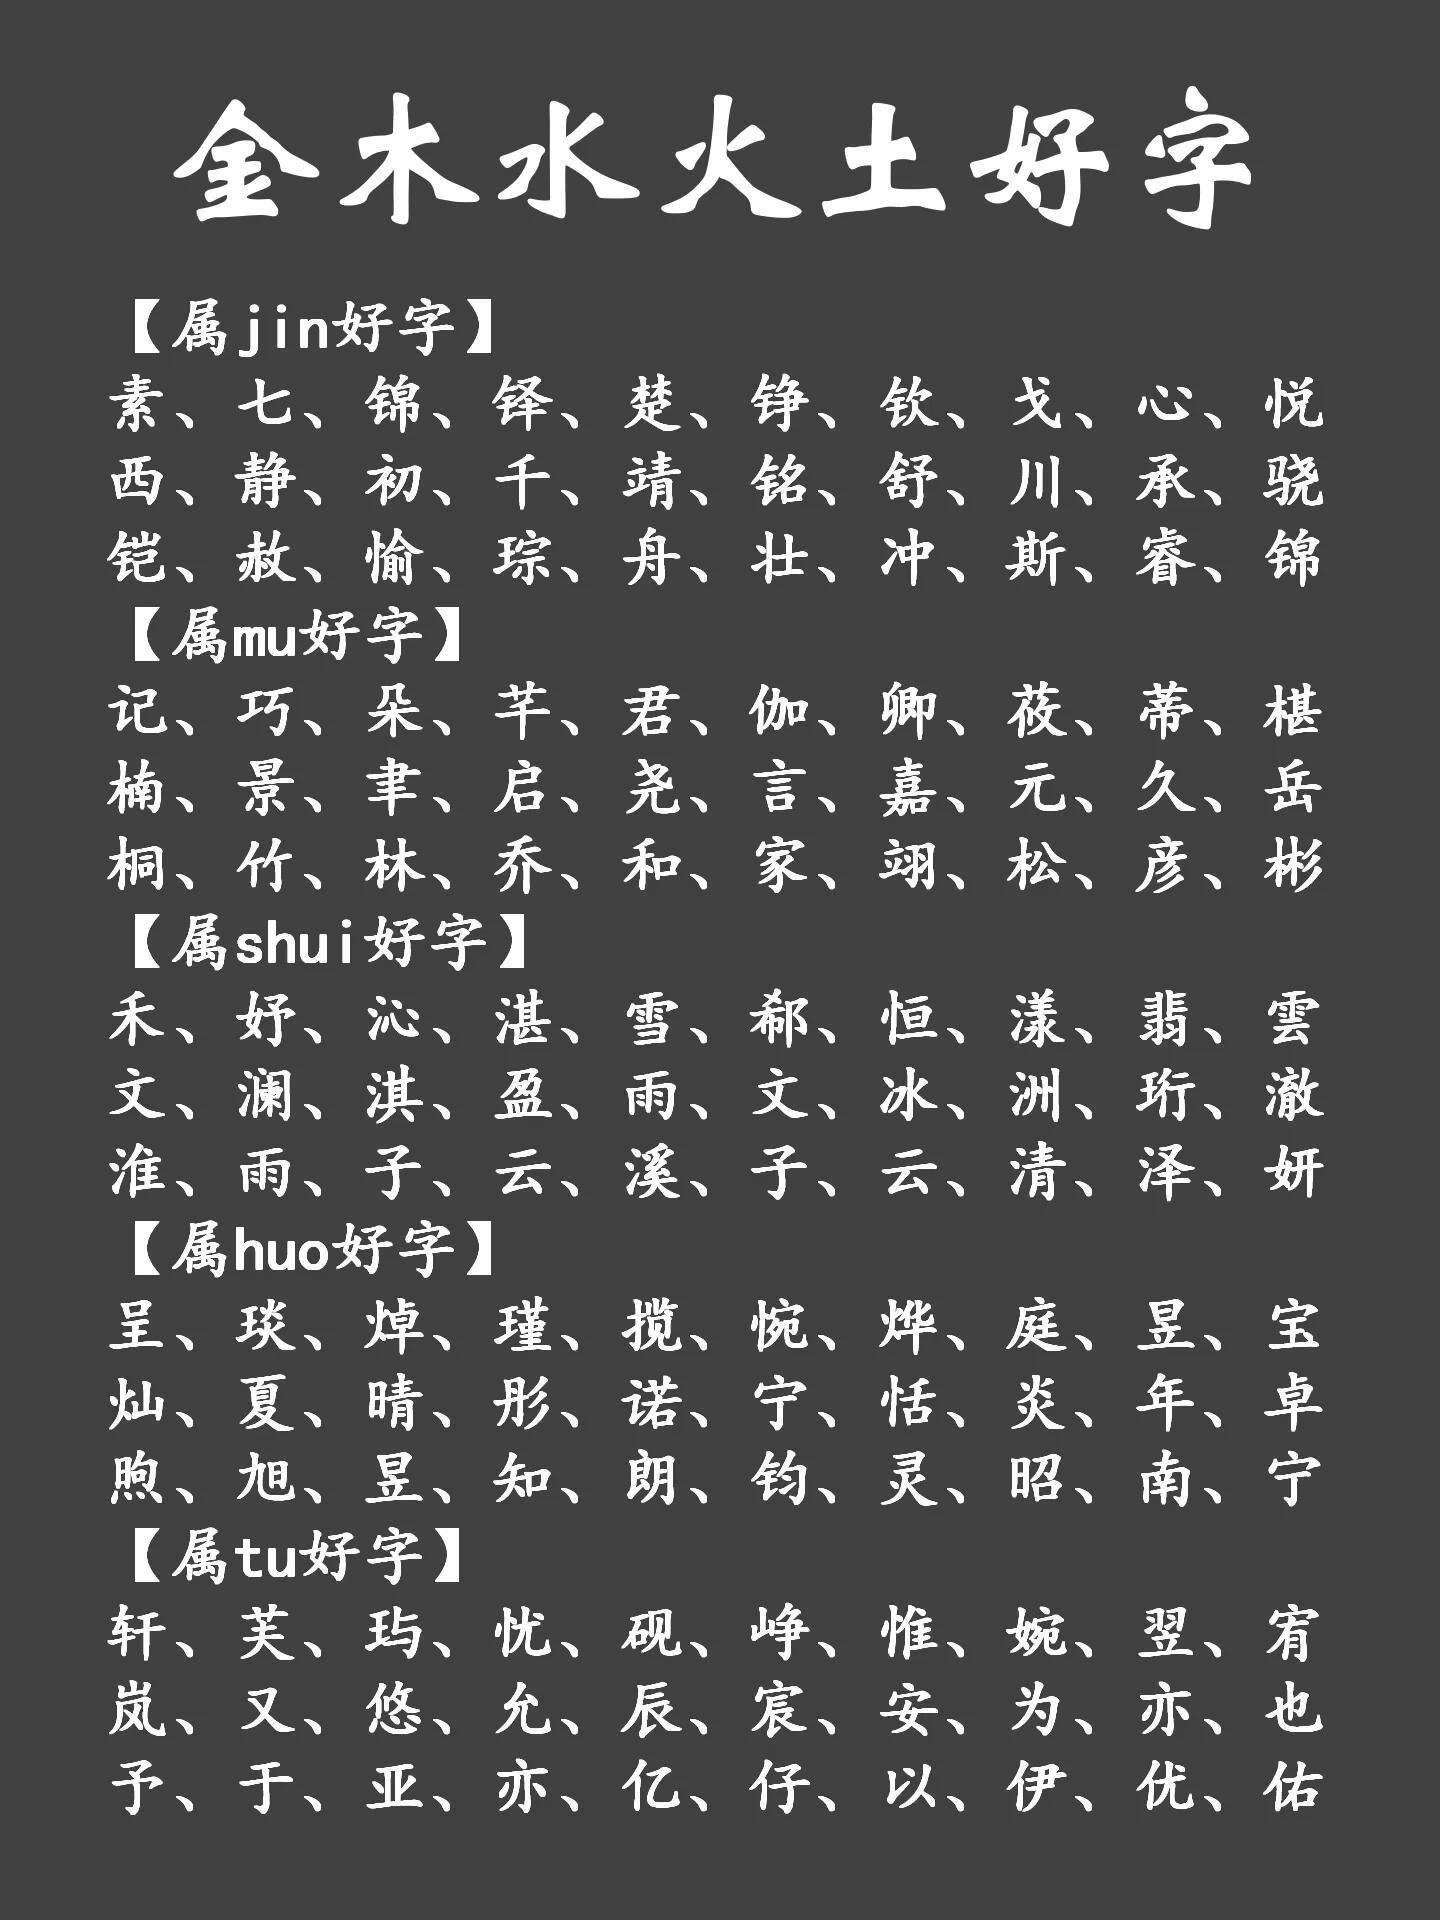 金木水火土好字
【属jin好字】
素、七、锦、铎、楚、铮、钦、戈、心、悦
西、静、初、千、靖、铭、舒、川、承、骁
铠、赦、愉、琮、舟、壮、冲、斯、睿、锦
【属mu好字】
记、巧、朵、芊、君、伽、卿、莜、蒂、椹
楠、景、聿、启、尧、言、嘉、元、久、岳
桐、竹、林、乔、和、家、翊、松、彦、彬
【属shui好字】
禾、妤、沁、湛、雪、郗、恒、漾、翡、雲
文、澜、淇、盈、雨、文、冰、洲、珩、澈
淮、雨、子、云、溪、子、云、清、泽、妍
【属huo好字】
呈、琰、焯、瑾、揽、惋、烨、庭、昱、宝
灿、夏、晴、彤、诺、宁、恬、炎、年、卓
煦、旭、昱、知、朗、钧、灵、昭、南、宁
【属tu好字】
轩、芙、玙、忧、砚、峥、惟、婉、翌、宥
岚、又、悠、允、辰、宸、安、为、亦、也
予、于、亚、亦、亿、仔、以、伊、优、佑